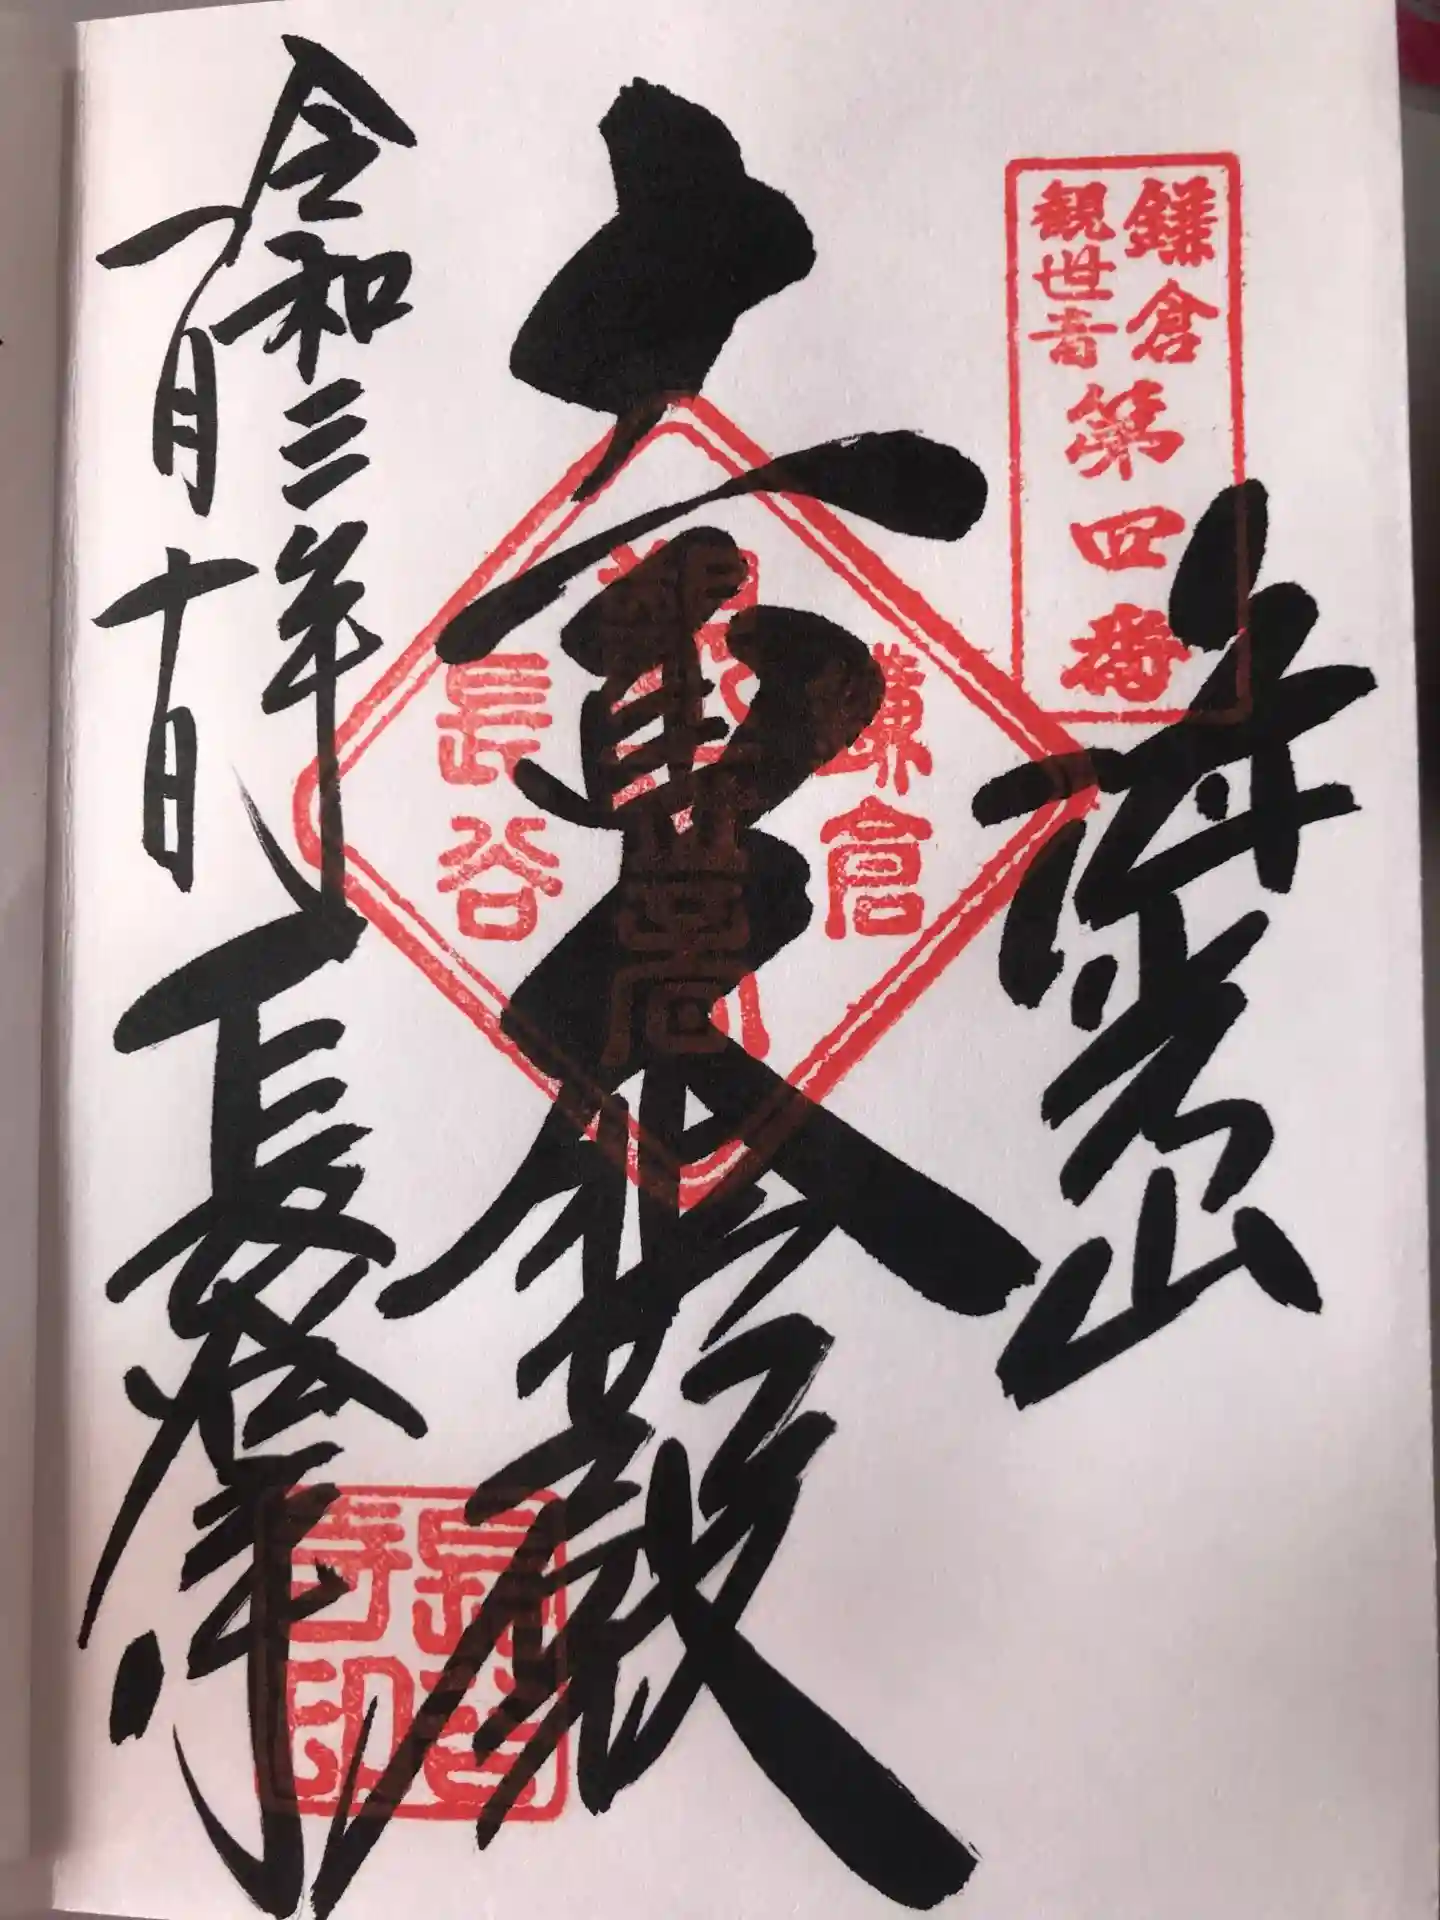 鎌倉
観世音
第四番
海光山
十一面大悲殿
鎌倉
観世音
長谷
令和三年
一月十日
長谷寺
長谷
寺印